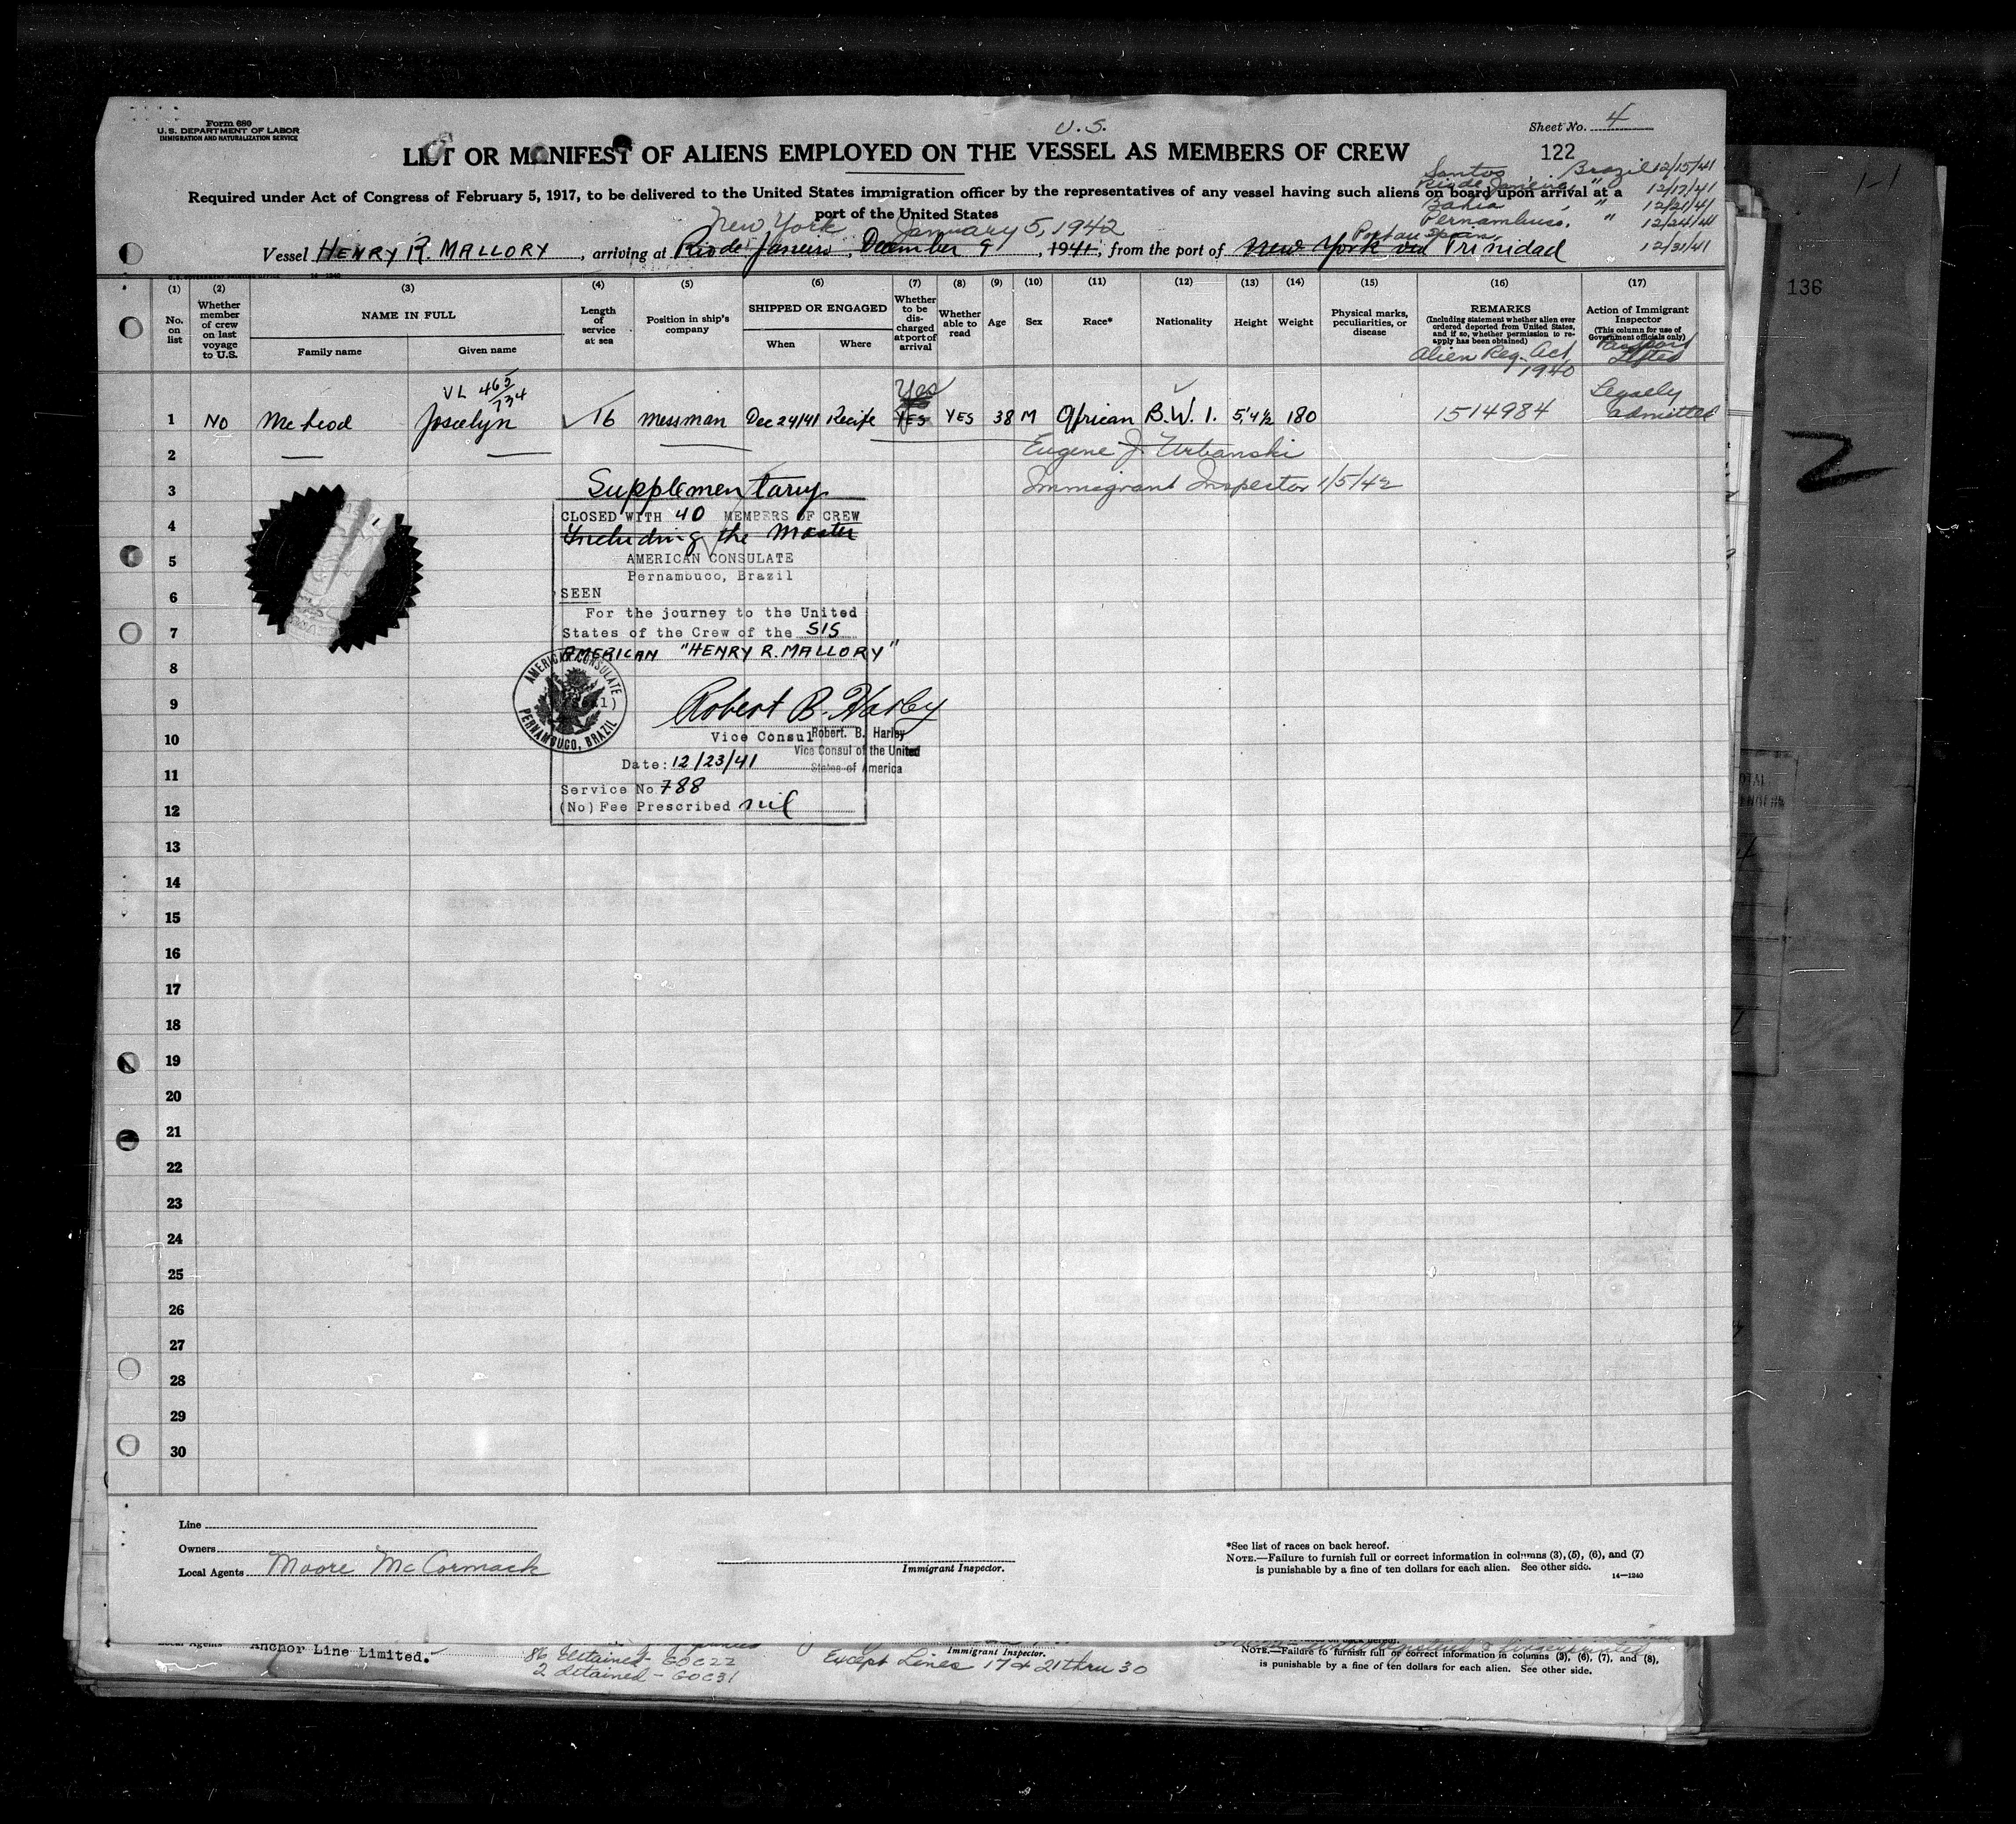 Form 680
U.S. DEPARTMENT OF LABOR
IMMIGRATION AND NATURALIZATION SERVICE
U.S.
Sheet No. 4
LIST OR MANIFEST OF ALIENS EMPLOYED ON THE VESSEL AS MEMBERS OF CREW
122
Santos, Brazil 12/15/41
Rio de Janeiro, " 12/17/41
Bahia, " 12/21/41
Pernambuco, " 12/24/41
Required under Act of Congress of February 5, 1917, to be delivered to the United States immigration officer by the representatives of any vessel having such aliens on board upon arrival at a
port of the United States
New York January 5, 1942
Port au Spain
Vessel HENRY R. MALLORY, arriving at Rio de Janeiro, December 9, 1941, from the port of New York via Trinidad 12/31/41
(1) (2) (3) (4) (5) (6) (7) (8) (9) (10) (11) (12) (13) (14) (15) (16) (17)
No. on list
Whether member of crew on last voyage to U.S.
NAME IN FULL
Family name
Given name
Length of service at sea
Position in ship's company
SHIPPED OR ENGAGED
When
Where
Whether to be discharged at port of arrival
Whether able to read
Age
Sex
Race*
Nationality
Height
Weight
Physical marks, peculiarities, or disease
REMARKS
(Including statement whether alien ever ordered deported from United States, and if so, whether permission to reapply has been obtained)
Action of Immigrant Inspector
(This column for use of Government officials only)
Alien Reg. Act
1940
Passport
Lifted
VL 465/734
Yes
Legally
1 NO McLeod Joscelyn 16 messman Dec 24/41 Recife YES YES 38 M African B.W.I. 5'4½ 180 1514984 admitted
2 Eugene J. Urbanski
3 Immigrant Inspector 1/5/42
Supplementary
CLOSED WITH 40 MEMBERS OF CREW
4
Including the Master
5
AMERICAN CONSULATE
Pernambuco, Brazil
6
SEEN
For the journey to the United
7
States of the Crew of the S/S
AMERICAN "HENRY R. MALLORY"
8
AMERICAN CONSULATE
PERNAMBUCO, BRAZIL
9
Robert B. Harley
10
Vice Consul
Robert. B. Harley
Vice Consul of the United
States of America
11
Date: 12/23/41
Service No 788
12
(No) Fee Prescribed nil
13
14
15
16
17
18
19
20
21
22
23
24
25
26
27
28
29
30
Line
Owners
Local Agents Moore McCormack
Immigrant Inspector.
*See list of races on back hereof.
NOTE.—Failure to furnish full or correct information in columns (3), (5), (6), and (7)
is punishable by a fine of ten dollars for each alien. See other side.
14—1240
Local Agents Anchor Line Limited.
86 detained - GOC22
2 detained - GOC31
Immigrant Inspector.
Except Lines 17 & 21 thru 30
NOTE.—Failure to furnish full or correct information in columns (3), (6), (7), and (8),
is punishable by a fine of ten dollars for each alien. See other side.
136
2
1-1